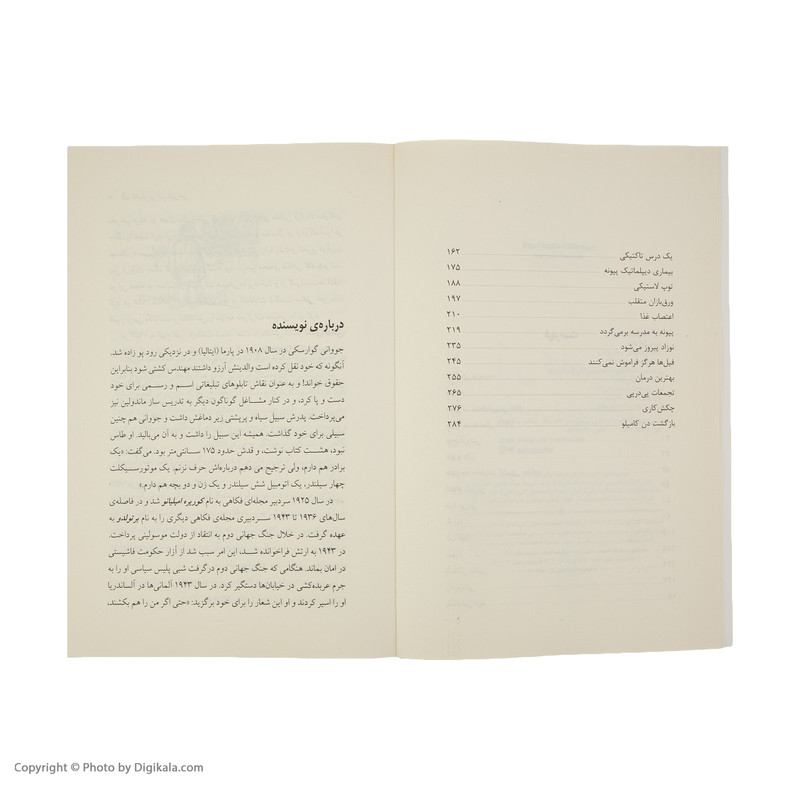 یک درس تاکتیکی ۱۶۲
بیماری دیپلماتیک پپونه ۱۷۵
توپ لاستیکی ۱۸۸
ورق‌بازان متقلب ۱۹۷
اعتصاب غذا ۲۱۰
پپونه به مدرسه برمی‌گردد ۲۱۹
نوزاد پیروز می‌شود ۲۳۵
فیل‌ها هرگز فراموش نمی‌کنند ۲۴۵
بهترین درمان ۲۵۵
تجمعات پی‌درپی ۲۶۵
چکش‌کاری ۲۷۶
بازگشت دُن کامیلو ۲۸۴
درباره‌ی نویسنده
جووانی گوارسکی در سال ۱۹۰۸ در پارما (ایتالیا) و در نزدیکی رود پو زاده شد.
آنگونه که خود نقل کرده است والدینش آرزو داشتند مهندس کشتی شود بنابراین
حقوق خواند! و به عنوان نقاش تابلوهای تبلیغاتی اسم و رسمی برای خود
دست و پا کرد، و در کنار مشاغل گوناگون دیگر به تدریس ساز ماندولین نیز
می‌پرداخت. پدرش سبیل سیاه و پرپشتی زیر دماغش داشت و جووانی هم چنین
سبیلی برای خود گذاشت. همیشه این سبیل را داشت و به آن می‌بالید. او طاس
نبود، هشت کتاب نوشت، و قدش حدود ۱۷۵ سانتی‌متر بود. می‌گفت: «یک
برادر هم دارم، ولی ترجیح می دهم درباره‌اش حرف نزنم. یک موتورسیکلت
چهار سیلندر، یک اتومبیل شش سیلندر و یک زن و دو بچه هم دارم.»
در سال ۱۹۲۵ سردبیر مجله‌ای فکاهی به نام کوریره امیلیانو شد و در فاصله‌ی
سال‌های ۱۹۳۶ تا ۱۹۴۳ سردبیری مجله‌ی فکاهی دیگری را به نام برتولدو به
عهده گرفت. در خلال جنگ جهانی دوم به انتقاد از دولت موسولینی پرداخت.
در ۱۹۴۳ به ارتش فراخوانده شد، این امر سبب شد از آزار حکومت فاشیستی
در امان بماند. هنگامی که جنگ جهانی دوم درگرفت شبی پلیس سیاسی او را به
جرم عربده‌کشی در خیابان‌ها دستگیر کرد. در سال ۱۹۴۳ آلمانی‌ها در آلساندریا
او را اسیر کردند و او این شعار را برای خود برگزید: «حتی اگر من را هم بکشند،
Copyright © Photo by Digikala.com